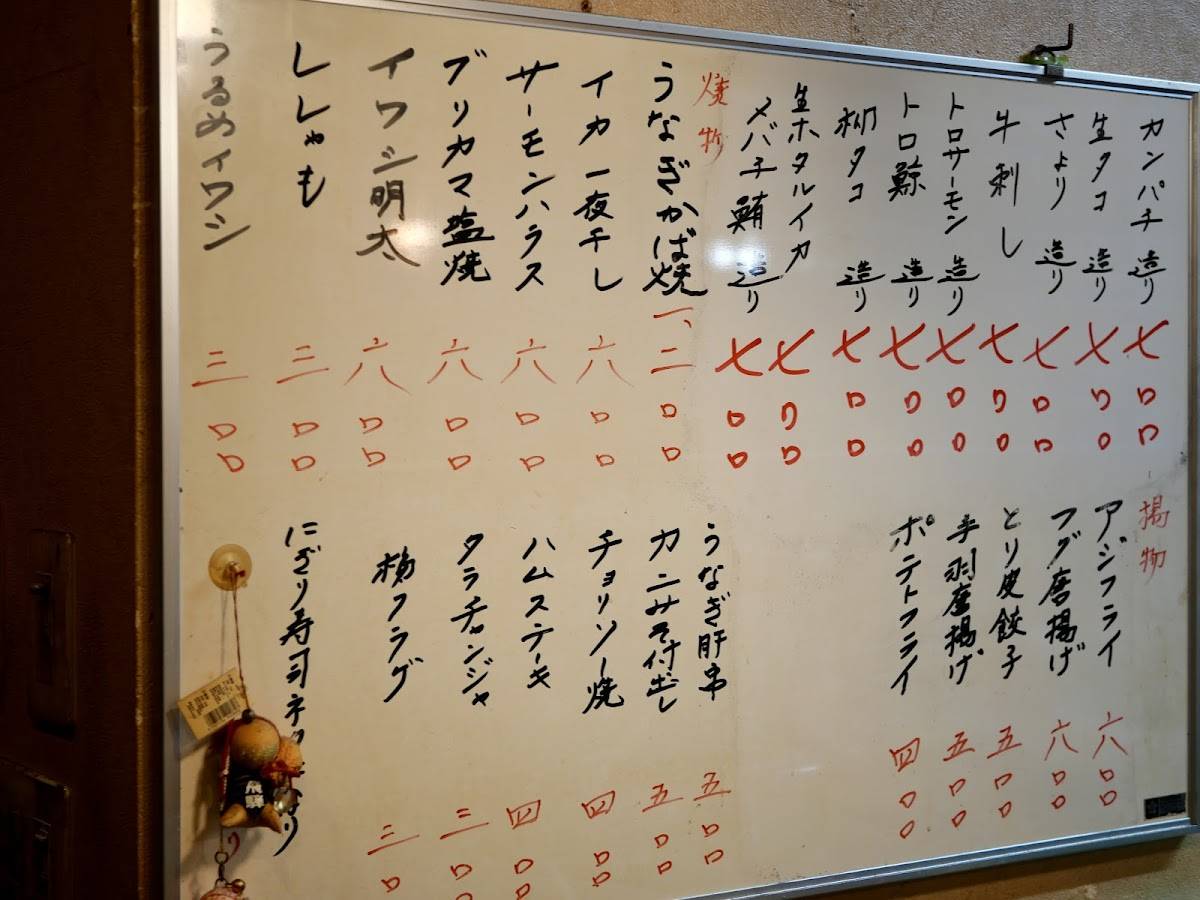 カンパチ造り 七〇〇
生タコ造り 七〇〇
さより造り 七〇〇
牛刺し 七〇〇
トロサーモン造り 七〇〇
トロ鯨造り 七〇〇
柳タコ造り 七〇〇
生ホタルイカ 七〇〇
メバチ鮪造り 七〇〇
焼物
うなぎかば焼 一、二〇〇
イカ一夜干し 六〇〇
サーモンハラス 六〇〇
ブリカマ塩焼 六〇〇
イワシ明太 六〇〇
ししゃも 三〇〇
うるめイワシ 三〇〇
揚物
アジフライ 六〇〇
フグ唐揚げ 六〇〇
とり皮餃子 五〇〇
手羽唐揚げ 五〇〇
ポテトフライ 四〇〇
うなぎ肝串 五〇〇
カニみそ付出し 五〇〇
チョリソー焼 四〇〇
ハムステーキ 四〇〇
タラチャンジャ 三〇
梅クラゲ 三〇
にぎり寿司ネタ
り
飛騨